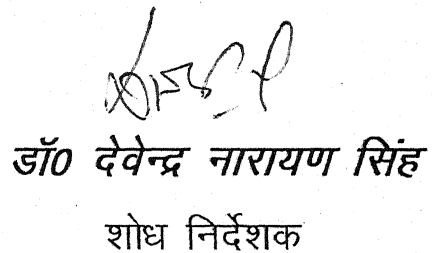 डॉ0 देवेन्द्र नारायण सिंह
शोध निर्देशक